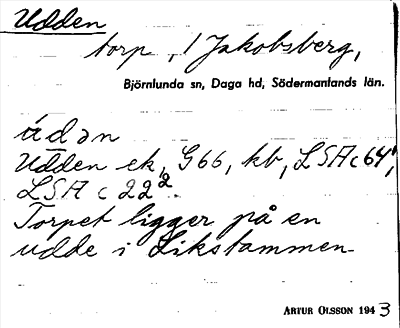 Udden
torp, 1 Jakobsberg,
Björnlunda sn, Daga hd, Södermanlands län.
ùdən
Udden ek, G66, kb, LSA c 64¹,
LSA c 22².
Torpet ligger på en
udde i Likstammen
ARTUR OLSSON 1943